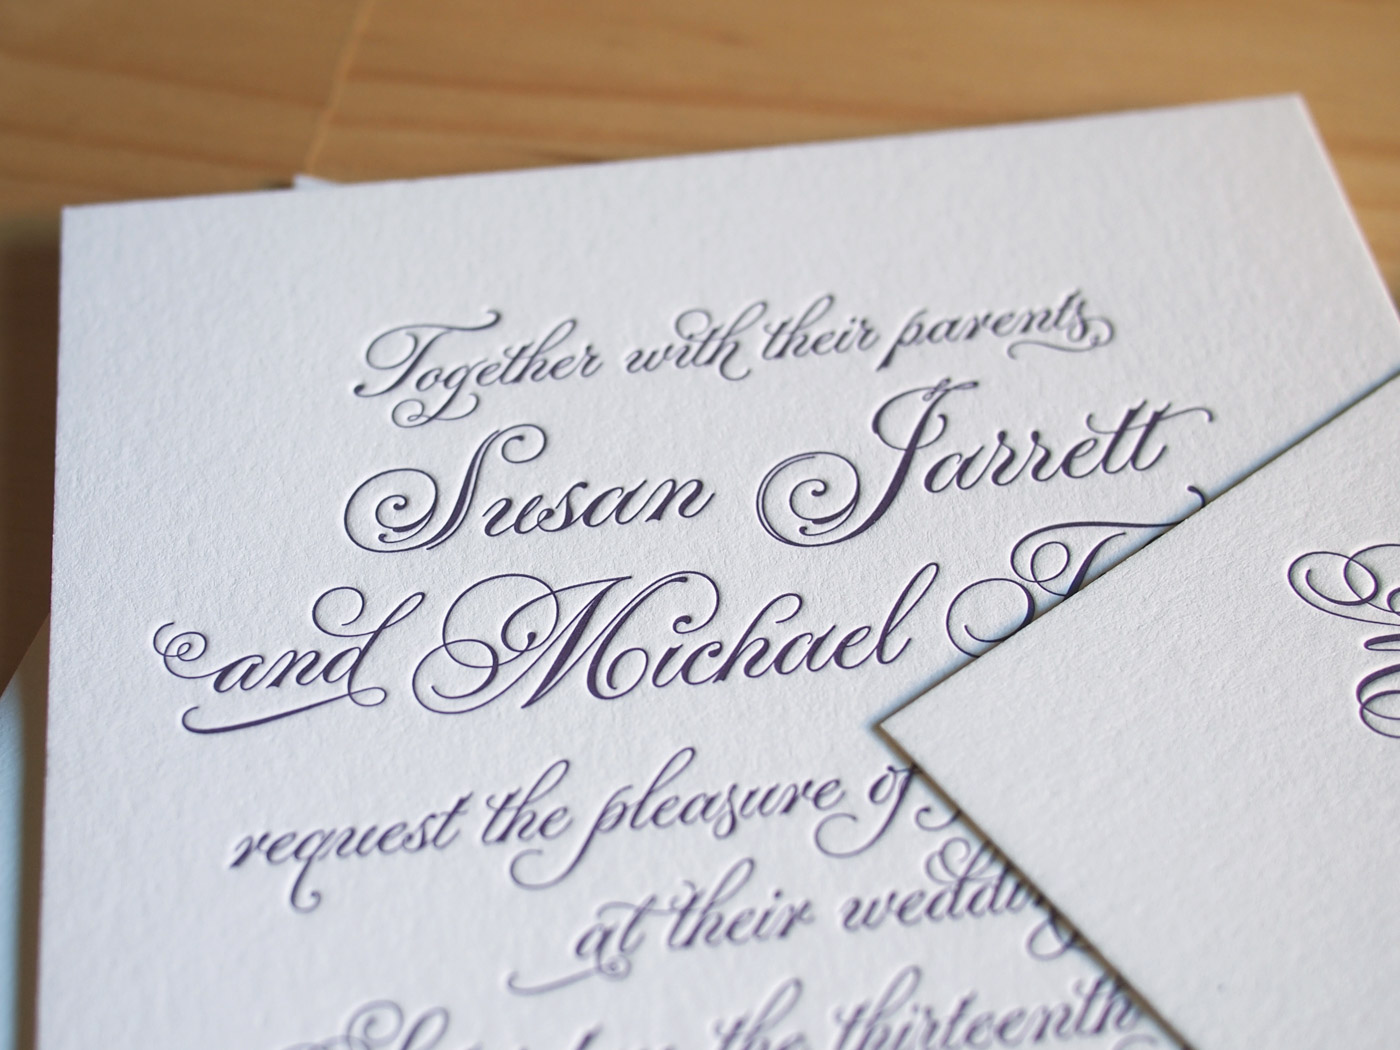 Together with their parents
Susan Jarrett
and Michael
request the pleasure of
at their
the thirteenth